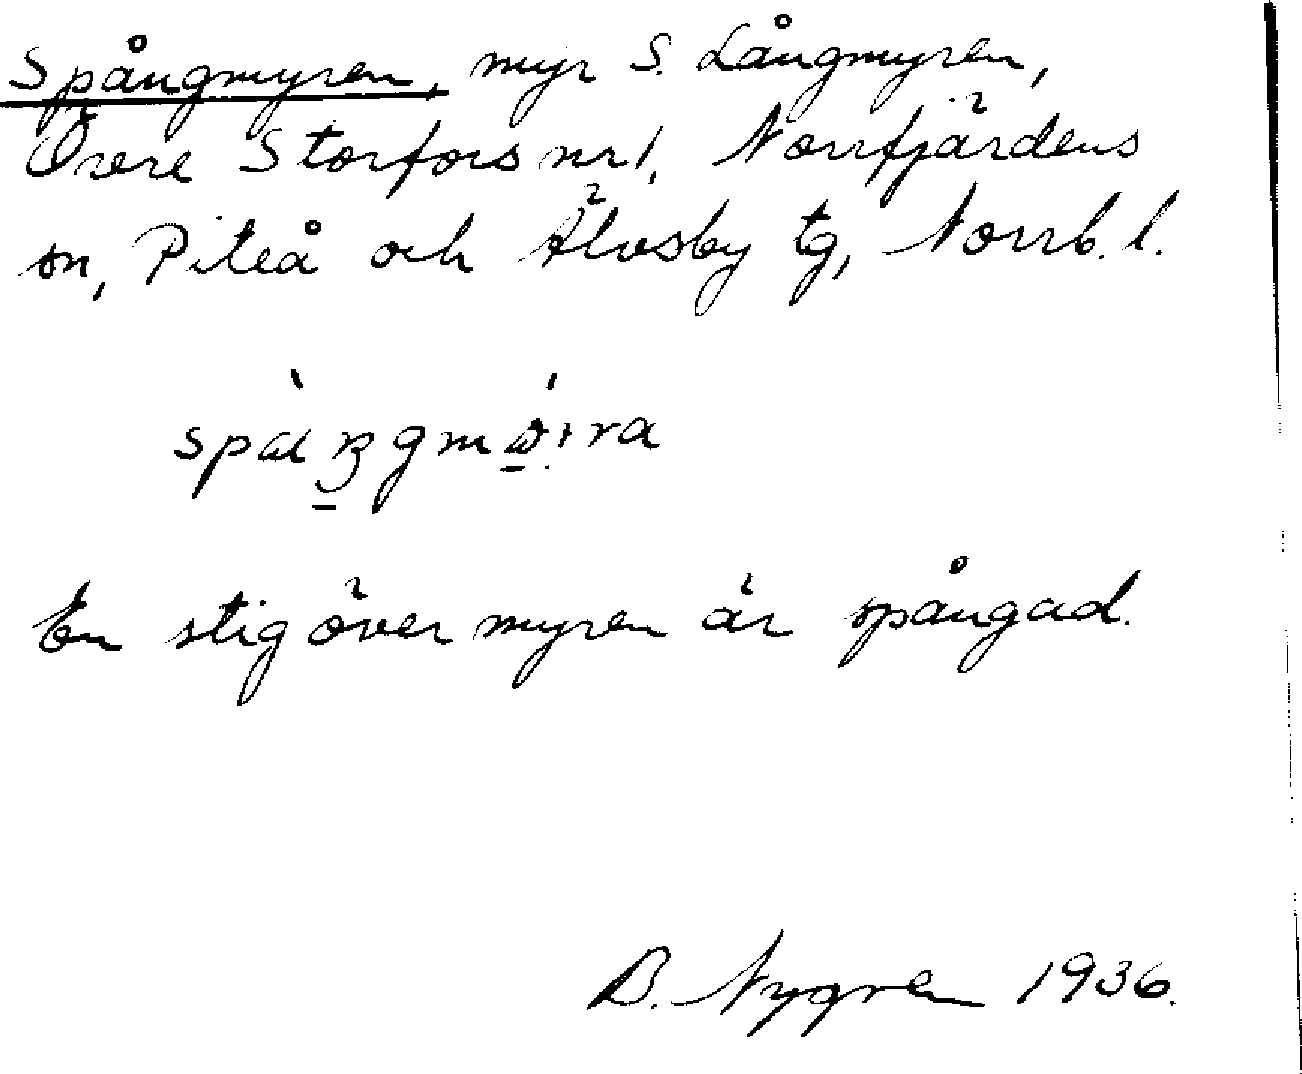 Spångmyren, myr S. Långmyren,
Övre Storfors nr 1, Norrfjärdens
sn, Piteå och Älvsby tg, Norrb. l.
En stig över myren är spångad.
B. Nygren 1936.